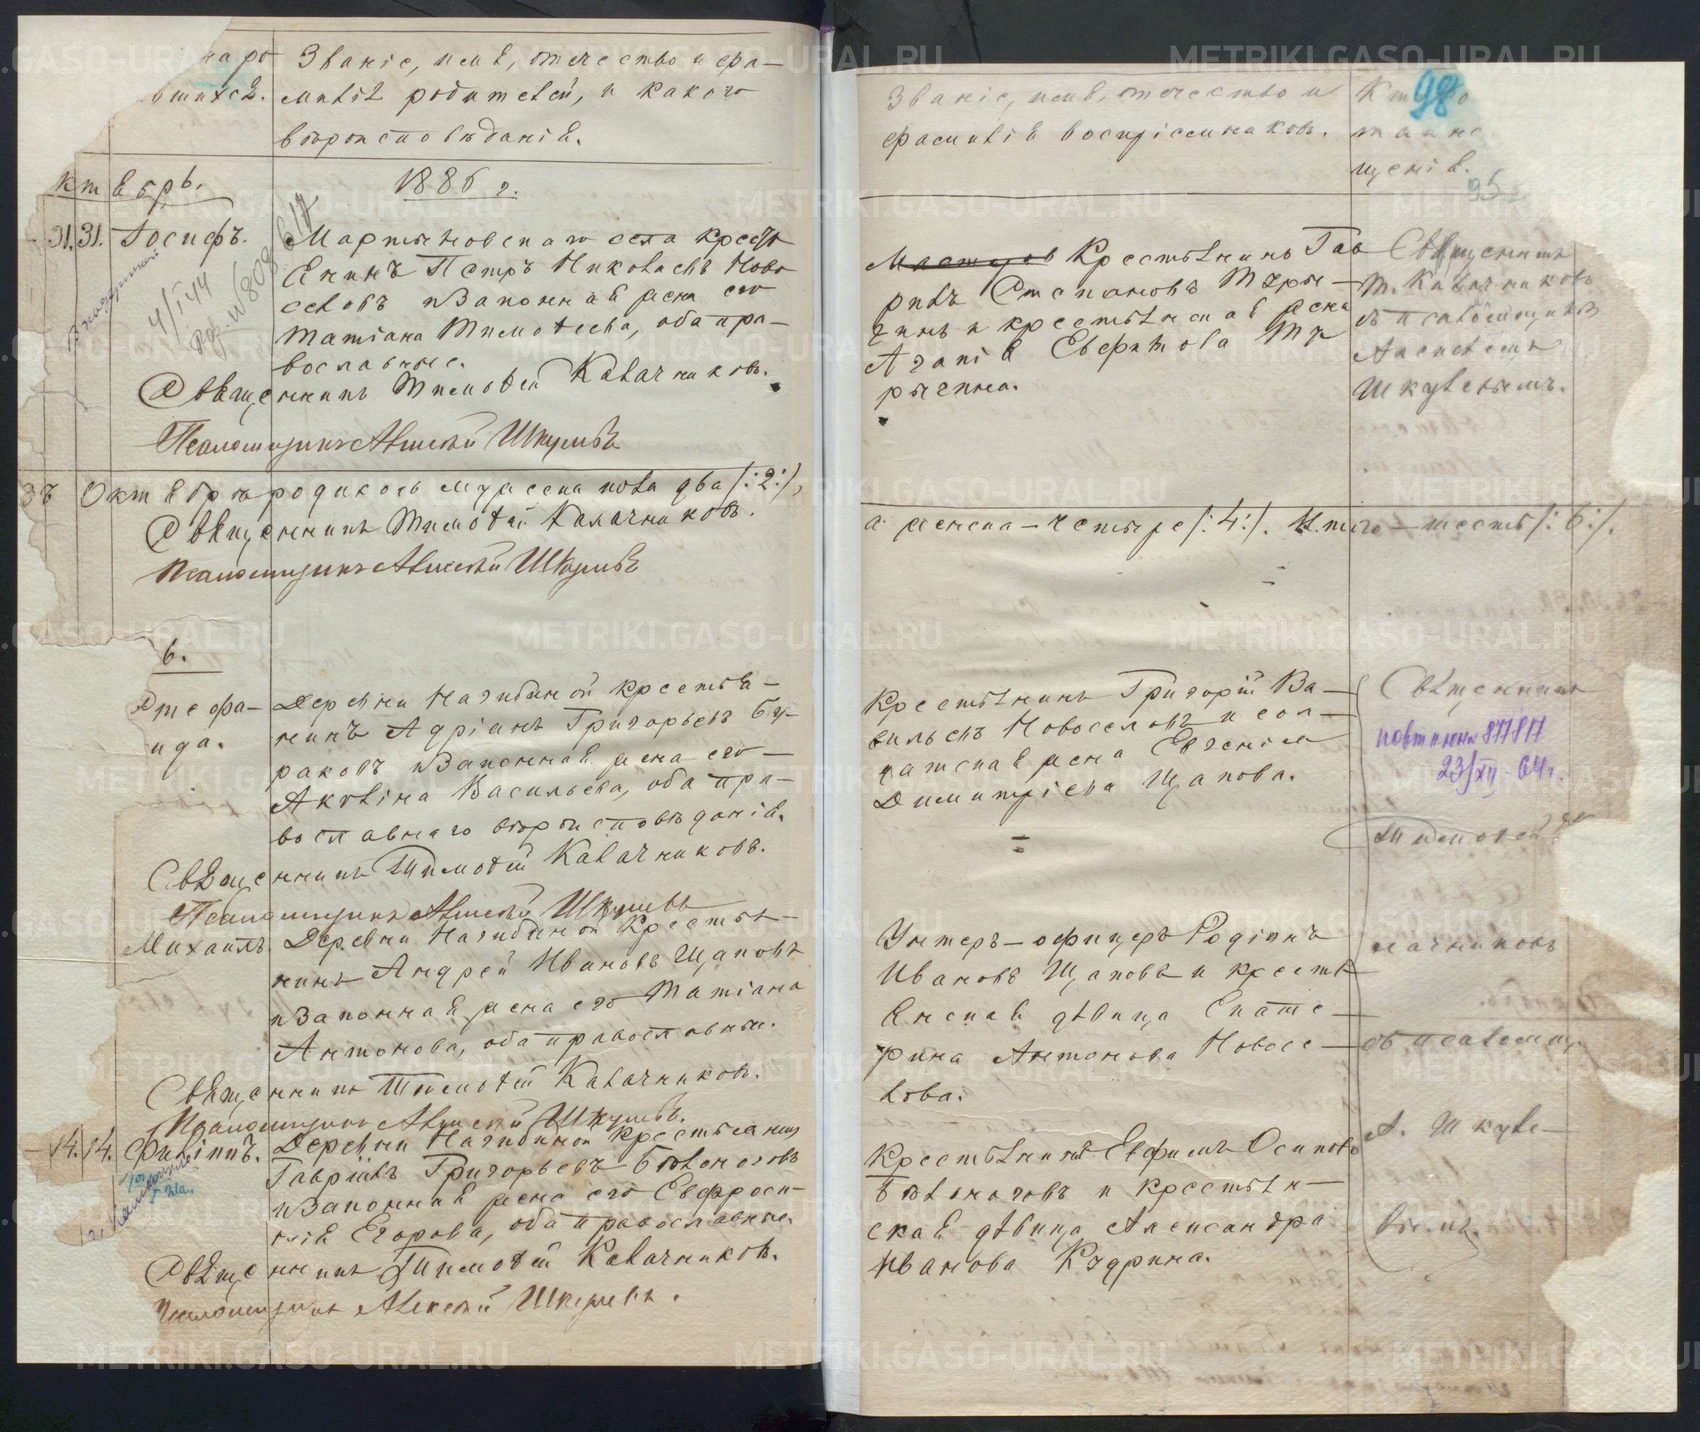 Званіе, имя, отчество и фа-
милія родителей, и какого
вѣроисповѣданія.
ктябрь.
1886 г.
31. 31. Іосифъ.
Мартыновскаго села кресть
янинъ Петръ Николаевъ Ново
селовъ и законная жена его
Татіана Тимофеева, оба пра-
вославные.
Священникъ Тимофей Калачниковъ.
Псаломщикъ Алексѣй Шкулевъ
Октябрѣ родилось мужеска пола два /:2:/,
Священникъ Тимофей Калачниковъ.
Псаломщикъ Алексѣй Шкулевъ
ь.
Стефа-
нида.
Деревни Нагибиной крестья-
нинъ Адріанъ Григорьевъ Бу-
раковъ и законная жена его
Акилина Васильева, оба пра-
вославнаго вѣроисповѣданія.
Священникъ Тимофей Калачниковъ.
Псаломщикъ Алексѣй Шкулевъ
Михаилъ.
Деревни Нагибиной крестья-
нинъ Андрей Ивановъ Щаповъ
и законная жена его Татіана
Антонова, оба православные.
Священникъ Тимофей Калачниковъ.
Псаломщикъ Алексѣй Шкулевъ.
14. 14. Филиппъ.
Деревни Нагибиной крестьянинъ
Гавріилъ Григорьевъ Бѣлоноговъ
и законная жена его Евфроси-
нія Егорова, оба православные.
Священникъ Тимофей Калачниковъ.
Псаломщикъ Алексѣй Шкулевъ.
98
Званіе, имя, отчество и
фамилія воспріемниковъ.
щенія.
Крестьянинъ Гав
рилъ Степановъ Тыры-
чинъ и крестьянская жена
Агапія Евфимова Ты
рычина.
Священникъ
Т. Калачниковъ
съ псаломщикомъ
Алексѣемъ
Шкулевымъ.
а женска - четыре /:4:/. Итого - шесть /:6:/.
Крестьянинъ Григорій Ва-
сильевъ Новоселовъ и сол-
датская жена Евгенія
Димитріева Щапова.
Священникъ
повторн 87817
23/XII-64 г.
Тимофей
Унтеръ-офицеръ Родіонъ
Ивановъ Щаповъ и кресть
янская дѣвица Екате-
рина Антонова Новосе-
лова.
лачниковъ
съ псаломщ.
Крестьянинъ Евфимъ Осиповъ
Бѣлоноговъ и крестьян-
ская дѣвица Александра
Иванова Кудрина.
А. Шкуле-
вымъ.
METRIKI.GASO-URAL.RU